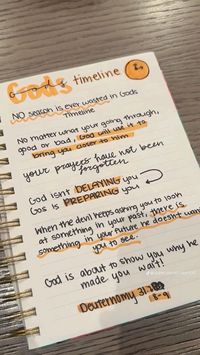 Gods timeline
NO season is ever wasted in Gods
Timeline
No matter what your going through,
good or bad, God will use it to
bring you closer to him
your prayers have not been
forgotten
God isnt DELAYING you
Gos is PREPARING you
When the devil keeps asking you to look
at something in your past, there is
something in your future he doesnt want
you to see.
God is about to show you why he
made you wait!
Deuteronomy 31:
8-9